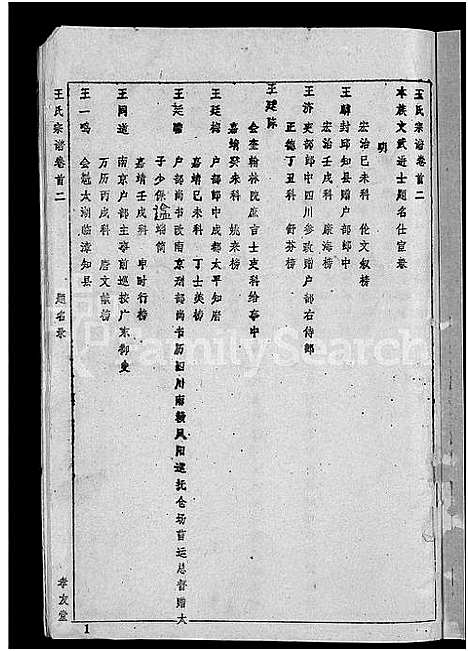 王氏宗谱卷首二
本族文武进士题名仕宦录
明
宏治己未科 伦文叙榜
王麟 封邱知县赠户部郎中
宏治壬戌科 康海榜
王济 吏部郎中四川参政赠户部右侍郎
正德丁丑科 舒芬榜
王廷陈
会奎翰林院庶吉士吏科给事中
嘉靖癸未科 姚涞榜
王廷梅 户部郎中成都太平知府
嘉靖己未科 丁士美榜
王廷瞻 户部尚书改南京刑部尚书历四川南赣凤阳巡抚仓场首运总督赠大
子少保谥端简
嘉靖壬戌科 申时行榜
王同道 南京户部主事前巡按广东御史
万历丙戌科 唐文献榜
王一鸣 会魁太湖临漳知县
王氏宗谱卷首二 题名录 孝友堂
1
FamilySearch